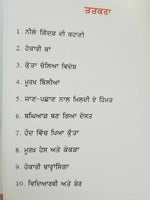 ਤਤਕਰਾ
1. ਨੀਲੇ ਗਿੱਦੜ ਦੀ ਕਹਾਣੀ
2. ਹੰਕਾਰੀ ਕਾਂ
3. ਕੁੱਤਾ ਚੱਲਿਆ ਵਿਦੇਸ਼
4. ਮੂਰਖ ਬਿੱਲੀਆਂ
5. ਜਾਣ-ਪਛਾਣ ਨਾਲ ਮਿਲਦੀ ਏ ਹਿੰਮਤ
6. ਬਘਿਆੜ ਬਣ ਗਿਆ ਦੋਸਤ
7. ਹੌਦ ਵਿੱਚ ਪਿਆ ਕੁੱਤਾ
8. ਮੂਰਖ ਹੰਸ ਅਤੇ ਕੇਕੜਾ
9. ਹੰਕਾਰੀ ਬਾਰ੍ਹਾਸਿੰਗਾ
10. ਵਿਦਿਆਰਥੀ ਅਤੇ ਸ਼ੇਰ